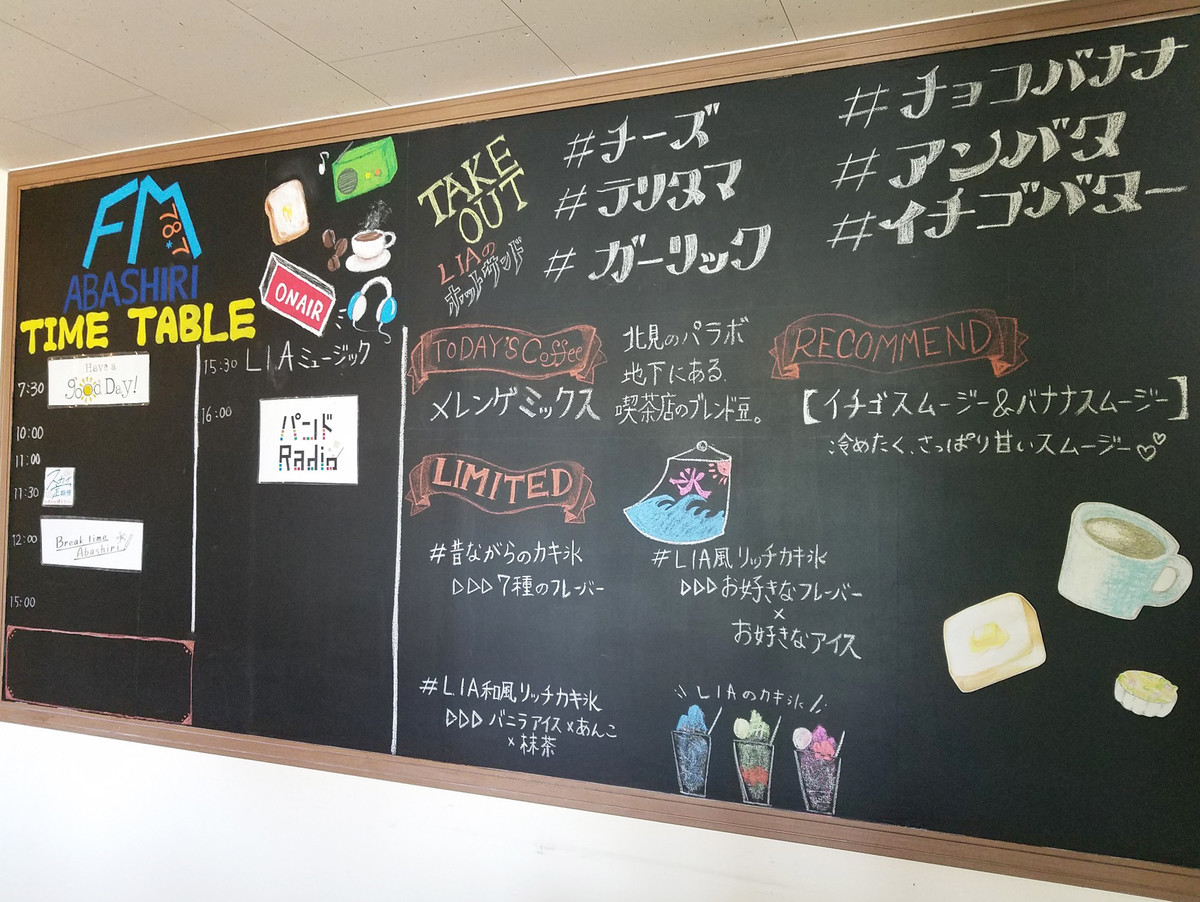 FM
78*7
ABASHIRI
TIME TABLE
7:30
Have a
good Day!
10:00
11:00
11:30
12:00
Break time
Abashiri
15:00
15:30 LIAミュージック
16:00
パンド
Radio
ON AIR
TAKE
OUT
LIAの
ホットサンド
#チーズ
#テリタマ
#ガーリック
#チョコバナナ
#アンバタ
#イチゴバター
TODAY'S Coffee
メレンゲミックス
北見のパラボ
地下にある
喫茶店のブレンド豆。
RECOMMEND
【イチゴスムージー&バナナスムージー】
冷めたく、さっぱり甘いスムージー♡♡
LIMITED
氷
#昔ながらのカキ氷
▷▷▷7種のフレーバー
#LIA風リッチカキ氷
▷▷▷お好きなフレーバー
×
お好きなアイス
#LIA和風リッチカキ氷
▷▷▷バニラアイス×あんこ
×抹茶
\\LIAのカキ氷//